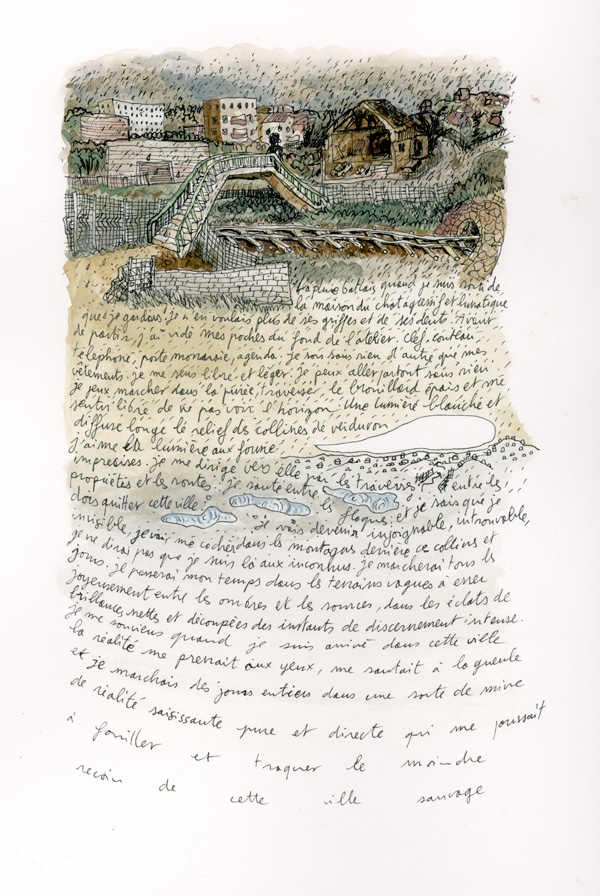 La pluie battais quand je suis sorti de
la maison du chat agressif et lunatique
que je gardais, je n'en voulais plus de ses griffes et de ses dents. Avant
de partir j'ai vidé mes poches du fond de l'atelier. Clef, couteau,
téléphone, porte monnaie, agenda. je sors sans rien d'autre que mes
vêtements. je me sens libre et léger. Je peux aller partout sans rien
je peux marcher dans la purée, traverser le brouillard épais et me
sentir libre de ne pas voir l'horizon. Une lumière blanche et
diffuse longe le relief des collines de
j'aime la lumière aux formes
imprecises. Je me dirige vers elle par les traverses entre les
propriétés et les routes. Je saute entre les flaques, et je sais que je
dois quitter cette ville. Je vais devenir injoignable, introuvable,
invisible, je vais me cocher dans les montagnes derrière ce collines et
je ne dirai pas que je suis là aux inconnus. je marcherai tous les
jours. je passerai mon temps dans les terrains vagues à errer
joyeusement entre les ombres et les sources, dans les éclats de
brillances nettes et découpées des instants de discernement intense.
Je me souviens quand je suis arrivé dans cette ville
la réalité me prenait aux yeux, me sautait à la gueule
et je marchais des jours entiers dans une sorte de mine
de réalité saisissante pure et directe qui me poussait
à fouiller et traquer le moindre
recoin de cette ville sauvage